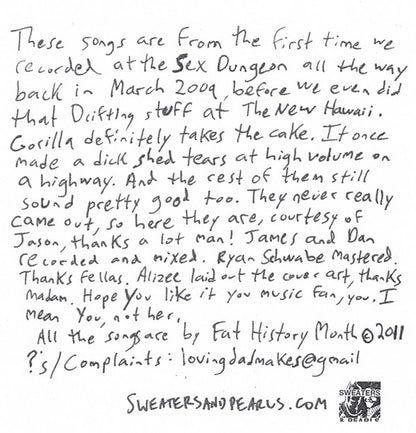 These songs are from the first time we
recorded at the Sex Dungeon all the way
back in March 2009, before we even did
that Drifting stuff at The New Hawaii.
Gorilla definitely takes the cake. It once
made a dick shed tears at high volume on
a highway. And the rest of them still
sound pretty good too. They never really
came out, so here they are, courtesy of
Jason, thanks a lot man! James and Dan
recorded and mixed. Ryan Schwabe Mastered.
Thanks fellas. Alizee laid out the cover art, thanks
madam. Hope you like it you music fan, you. I
mean You, not her.
All the songs are by Fat History Month © 2011
?'s/Complaints: lovingdadmakes@gmail
SWEATERSANDPEARLS.COM
SWEATERS